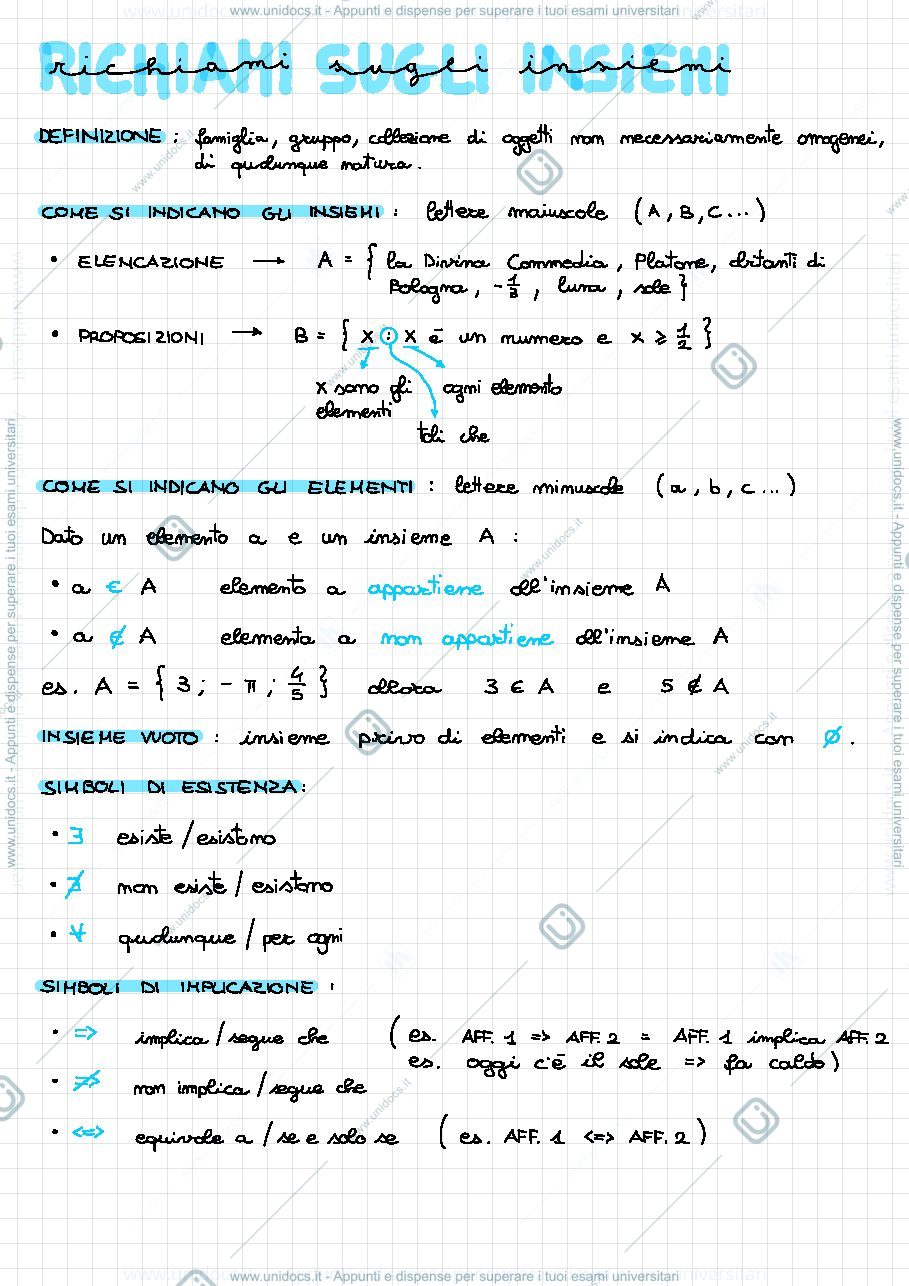 www.unidocs.it - Appunti e dispense per superare i tuoi esami universitari
RICHIAMI SUGLI INSIEMI
richiami sugli insiemi
DEFINIZIONE : famiglia, gruppo, collezione di oggetti non necessariamente omogenei,
di qualunque natura.
COME SI INDICANO GLI INSIEMI : lettere maiuscole (A, B, C...)
• ELENCAZIONE → A = { la Divina Commedia, Platone, abitanti di
Bologna, -1/3, luna, sole }
• PROPOSIZIONI → B = { x : x è un numero e x ≥ 1/2 }
x sono gli ogni elemento
elementi
tali che
COME SI INDICANO GLI ELEMENTI : lettere minuscole (a, b, c...)
Dato un elemento a e un insieme A :
• a ∈ A elemento a appartiene all'insieme A
• a ∉ A elemento a non appartiene all'insieme A
es. A = { 3 ; - π ; 4/5 } allora 3 ∈ A e 5 ∉ A
INSIEME VUOTO : insieme privo di elementi e si indica con ∅.
SIMBOLI DI ESISTENZA:
• ∃ esiste / esistono
• ∄ non esiste / esistono
• ∀ qualunque / per ogni
SIMBOLI DI IMPLICAZIONE :
• => implica / segue che (es. AFF. 1 => AFF. 2 = AFF. 1 implica AFF. 2
es. oggi c'è il sole => fa caldo)
• ≠> non implica / segue che
• <=> equivale a / se e solo se (es. AFF. 1 <=> AFF. 2)
www.unidocs.it - Appunti e dispense per superare i tuoi esami universitari
www.unidocs.it - Appunti e dispense per superare i tuoi esami universitari
www.unidocs.it - Appunti e dispense per superare i tuoi esami universitari